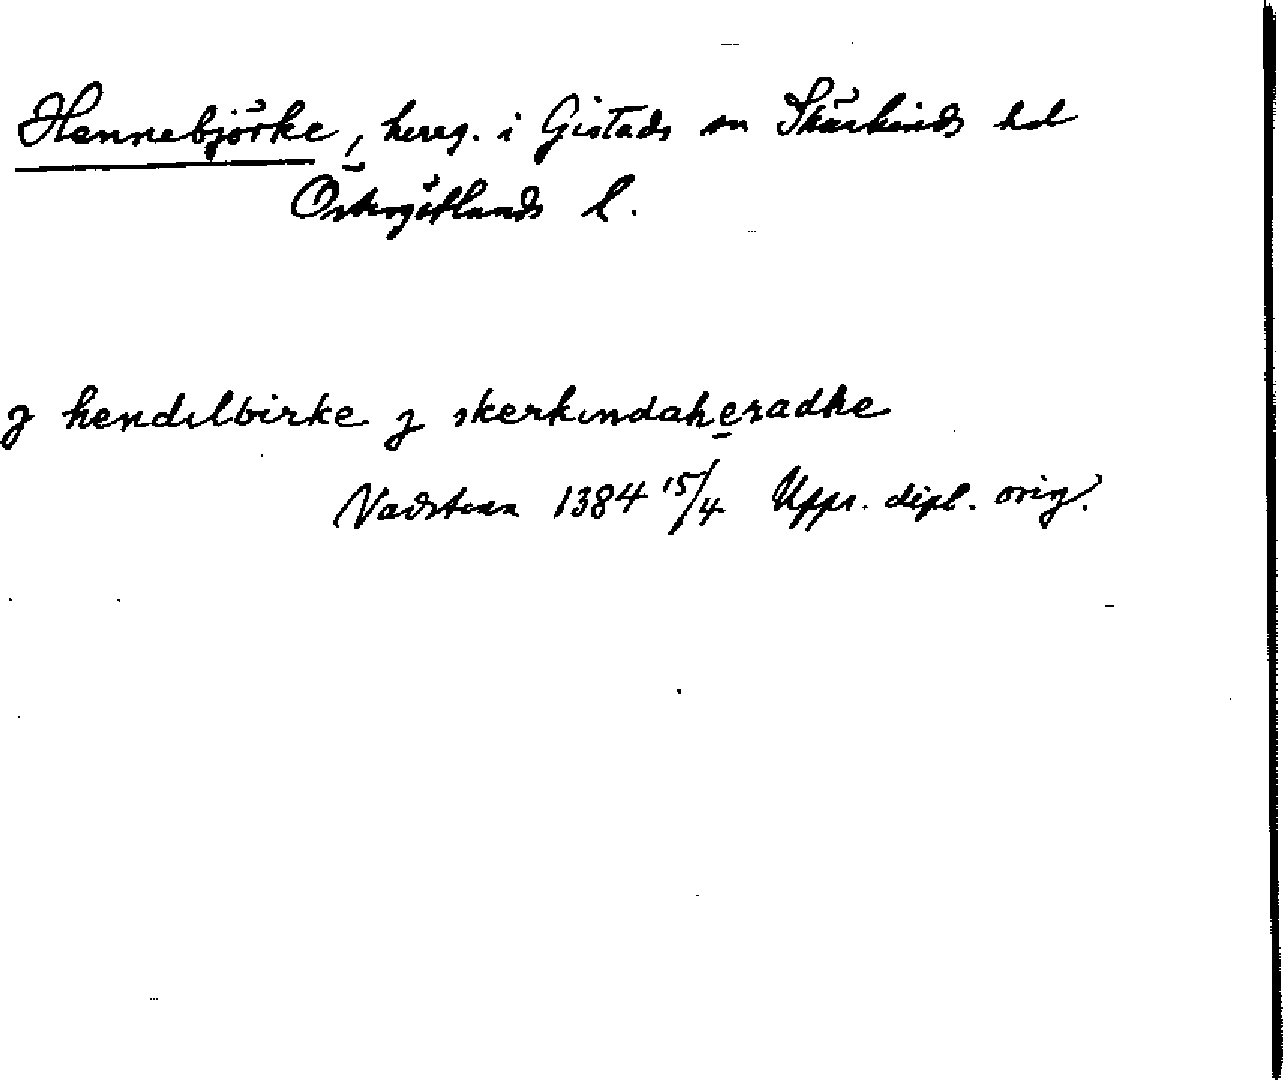 Hannebjörke, herrg. i Gistads sn Skärkinds hd
Östergötlands l.
j hendilbirke j skerkindaheradhe
Vadstena 1384 15/4 Upps. dipl. orig.